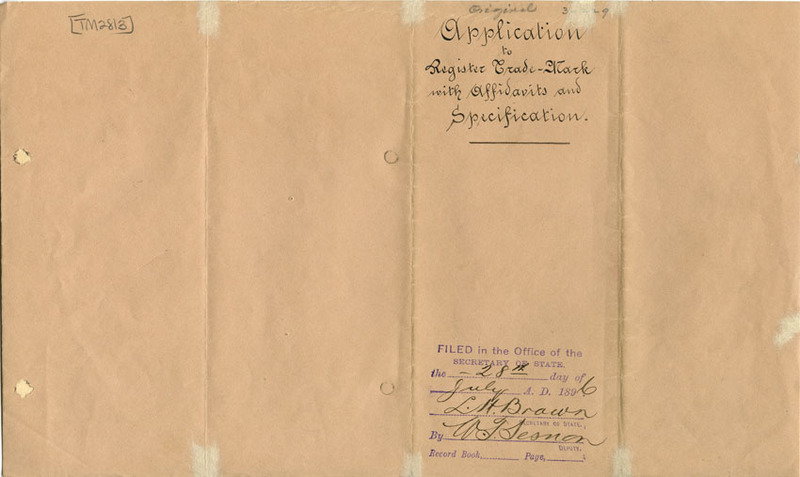 [TM2813]
Original
Application
to
Register Trade-Mark
with Affidavits and
Specification.
FILED in the Office of the
SECRETARY OF STATE.
the 28th day of
July A. D. 1896
L. H. Brown
SECRETARY OF STATE,
By W. T. Sesnon
DEPUTY.
Record Book, Page,